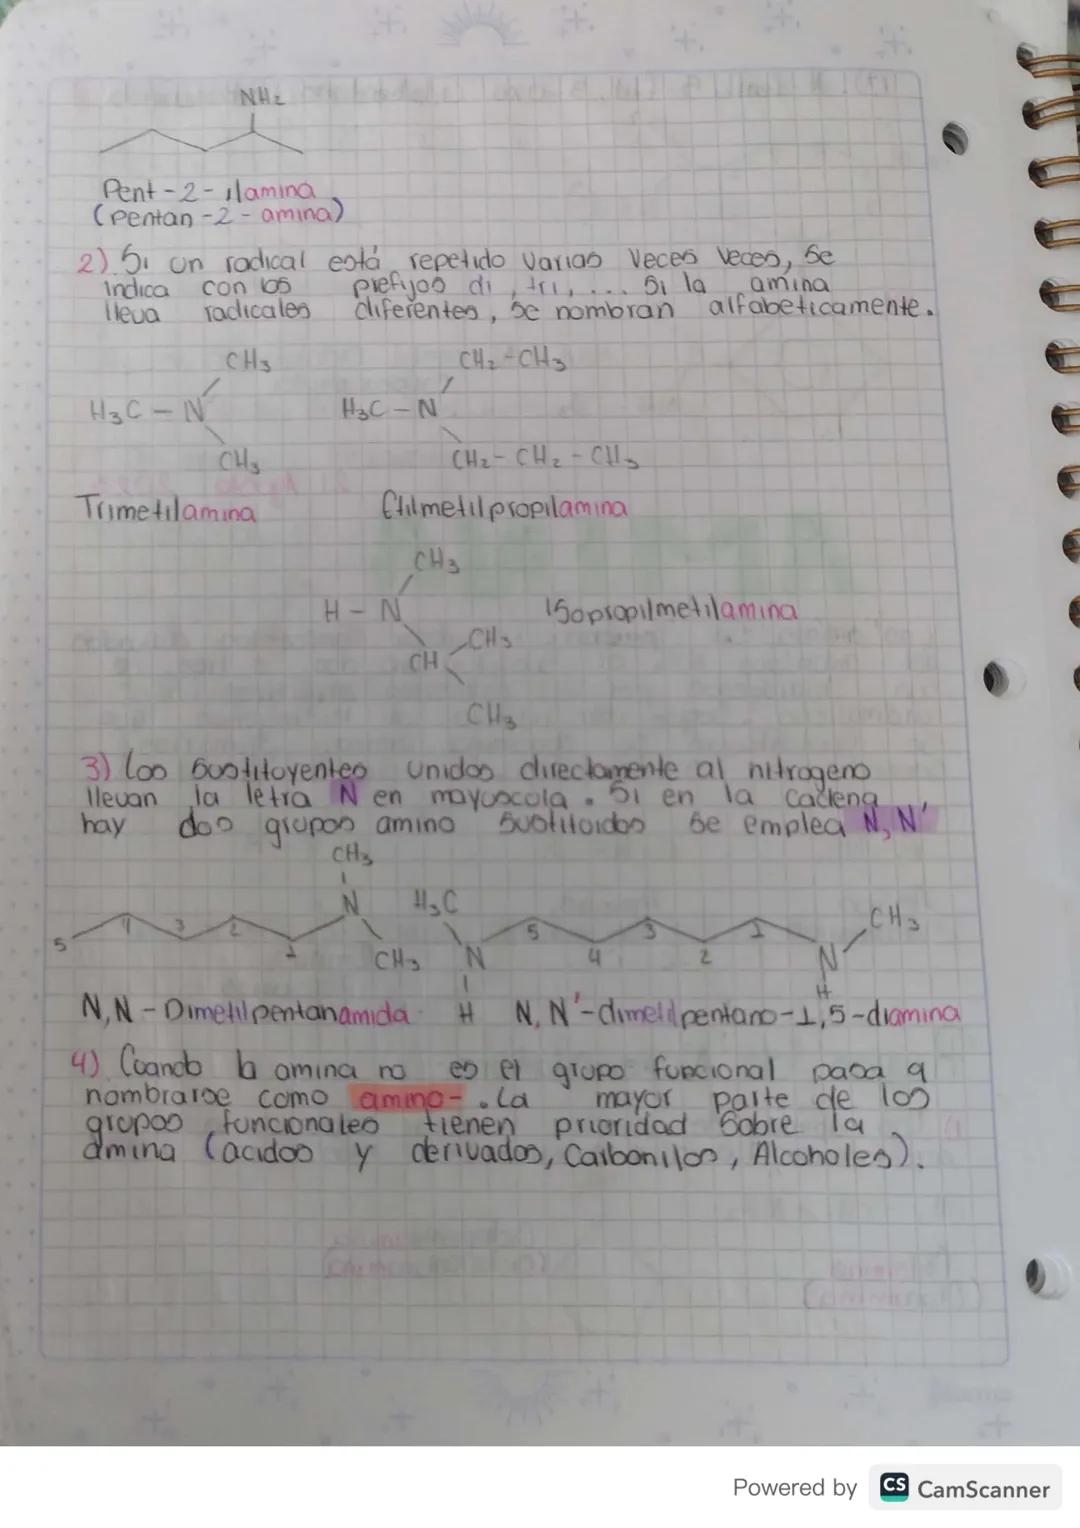 NH2
Pent-2-ilamina
(pentan-2-amina)
2) Si un radical está repetido varias veces veces, se
indica con los prefijos di, tri, ... Si la amina
lleva radicales diferentes, se nombran alfabeticamente.
CH3
CH2-CH3
H3C-N
H3C-N
CH3
CH2-CH2-CH3
Trimetilamina
Etilmetilpropilamina
CH3
H-N
Isopropilmetilamina
CH3
CH
CH3
3) Los sustituyentes unidos directamente al nitrogeno
llevan la letra N en mayuscola. Si en la cadena
hay dos grupos amino sustituidos se emplea N, N'
CH3
N
H3C
CH3
5 4 3 2 1
5 4 3 2 1
CH3
N
N
H
H
N,N-Dimetilpentanamida
N,N'-dimetilpentano-1,5-diamina
4) Cuando la amina no es el grupo funcional pasa a
nombrarse como amino-. La mayor parte de los
grupos funcionales tienen prioridad sobre la
amina (acidos y derivados, Carbonilos, Alcoholes).
Powered by CS CamScanner